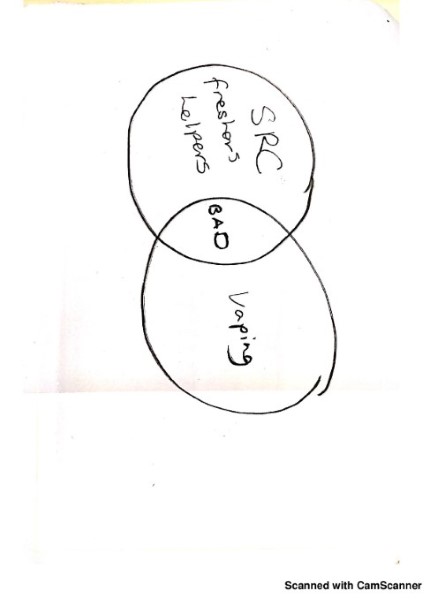 SRC
freshers
helpers
BAD
Vaping
Scanned with CamScanner